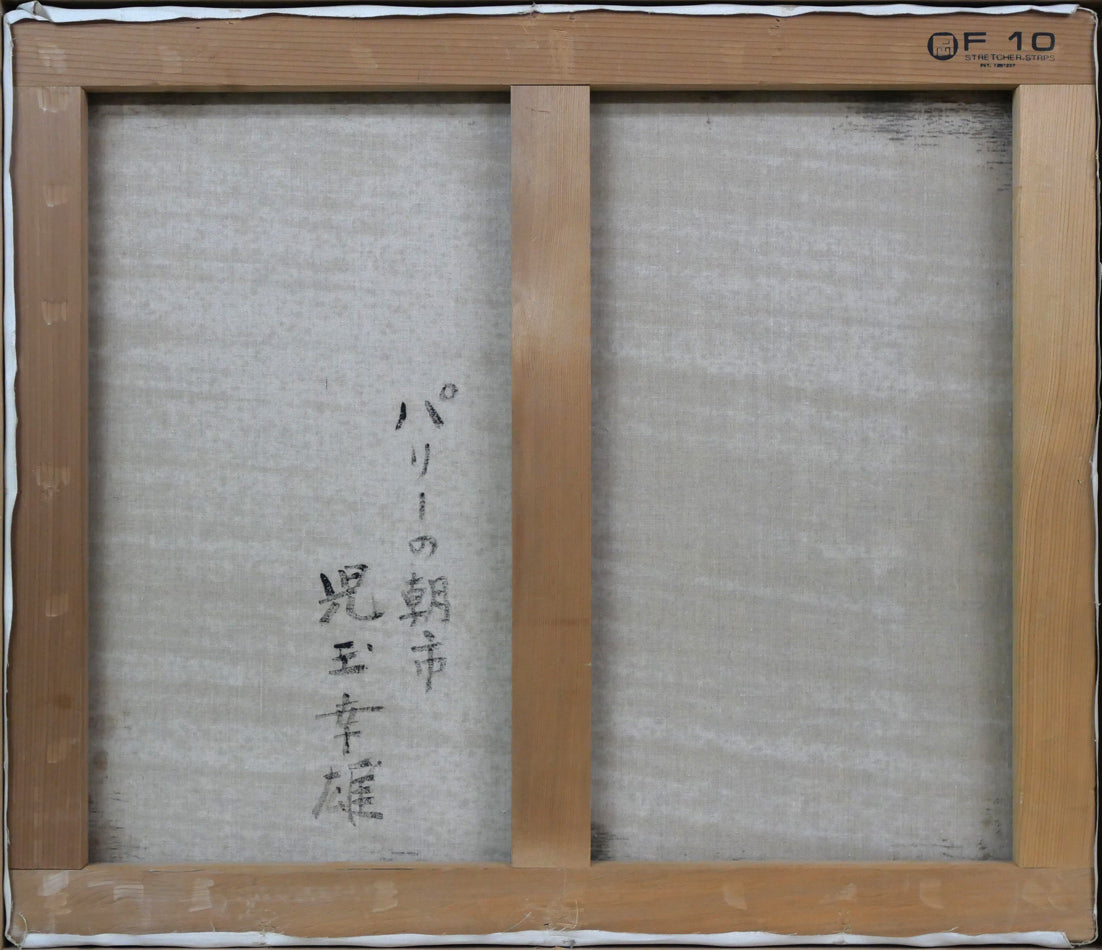 F 10
STRETCHER.STRIPS
パリーの朝市
児玉幸雄